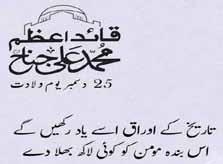 قائد اعظم
محمد علی جناح
25 دسمبر یوم ولادت
تاریخ کے اوراق اسے یاد رکھیں گے
اس بندہ مومن کو کوئی لاکھ بھلا دے